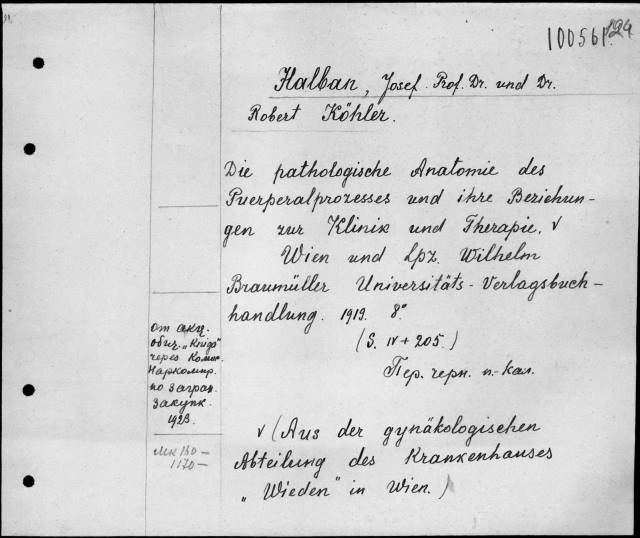 100561.
124
Halban, Josef. Prof. Dr. und Dr.
Robert Köhler.
Die pathologische Anatomie des
Puerperalprozesses und ihre Beziehun-
gen zur Klinik und Therapie. √
Wien und Lpz. Wilhelm
Braumüller Universitäts-Verlagsbuch-
handlung. 1919. 8°
(S. IV + 205.)
Пер. черн. п.-кал.
от акц.
общ. „Kniga"
через Комис.
Наркомпр.
по Загран.
Закупк.
1923.
Мк 130—
1170—
√ (Aus der gynäkologischen
Abteilung des Krankenhauses
„Wieden" in Wien.)